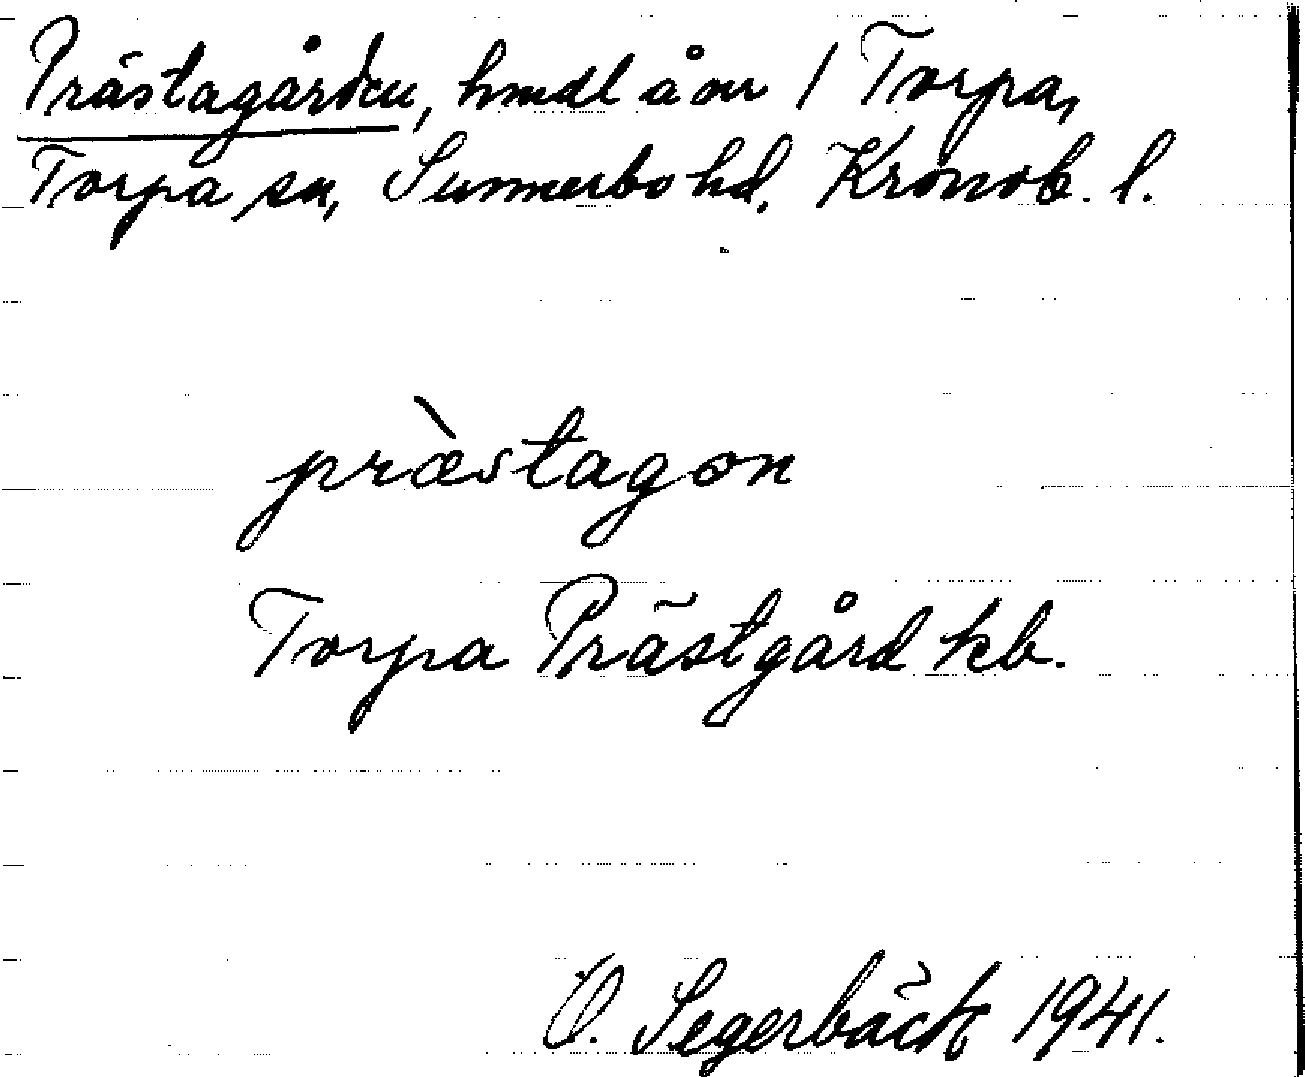 Prästagården, hmdl å nr 1 Torpa,
Torpa sn, Sunnerbo hd, Kronob. l.
præ̀stagon
Torpa Prästgård kb.
O. Segerbäck 1941.